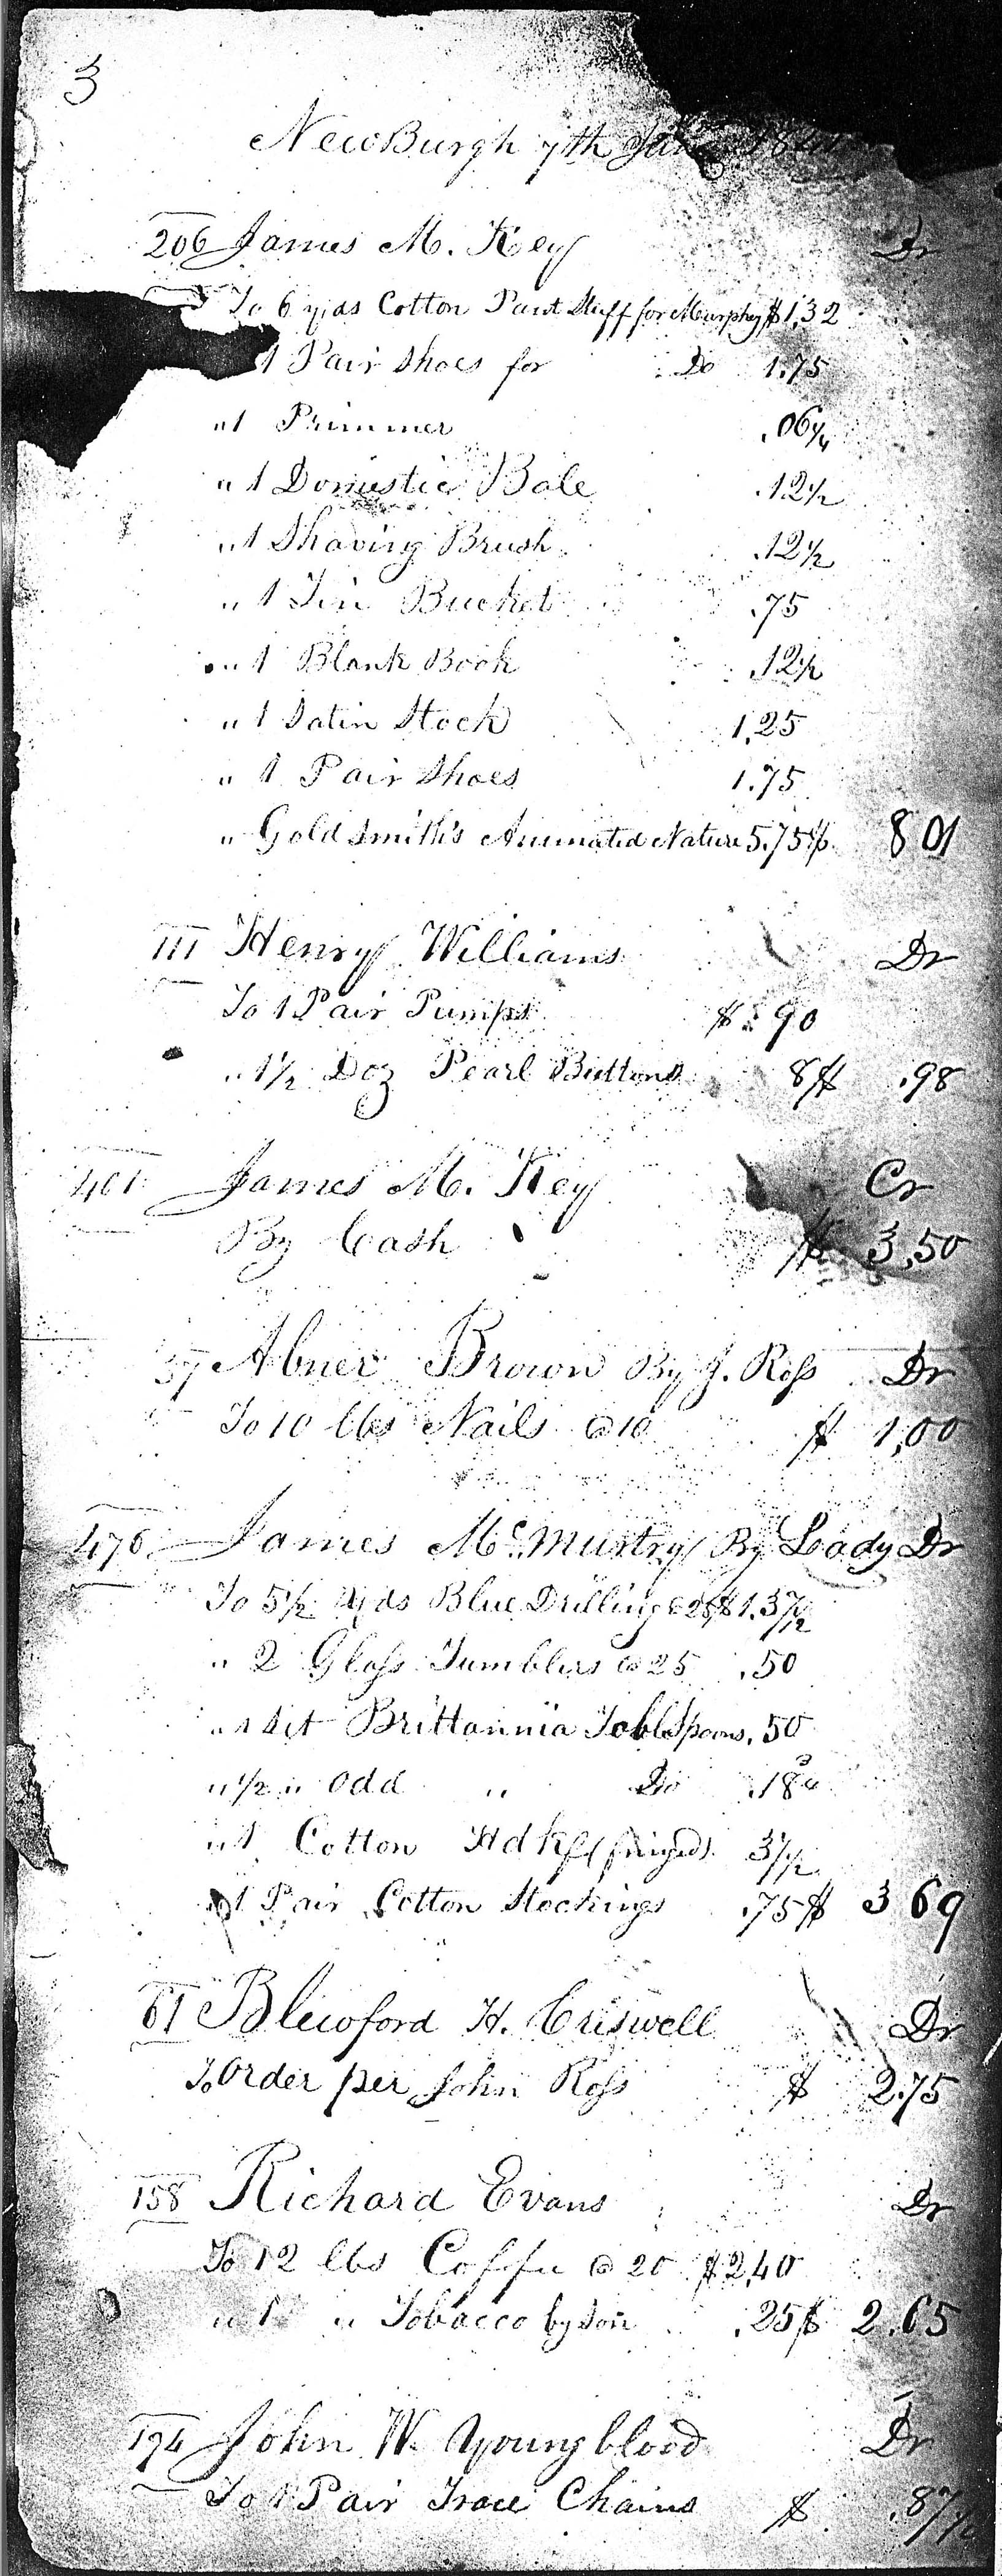 3
NewBurgh 7th
206 James M. Key Dr
To 6 yds Cotton Pant Stuff for Murphy $1.32
1 Pair Shoes for Do 1.75
" 1 Primmer .06¼
" 1 Domestic Bale .12½
" 1 Shaving Brush .12½
" 1 Tin Bucket .75
" 1 Blank Book .12½
" 1 Satin Stock 1.25
" 1 Pair Shoes 1.75
" Goldsmith's Animated Nature 5.75 $ 8 01
111 Henry Williams Dr
To 1 Pair Pumps $ .90
" 1½ Doz Pearl Buttons 8 $ .98
401 James M. Key Cr
By Cash $ 3.50
37 Abner Brown By J. Ross Dr
To 10 lbs Nails @ 10 $ 1.00
476 James McMurtry By Lady Dr
To 5½ Yds Blue Drilling @ 25 $ 1.37½
" 2 Glass Tumblers @ 25 .50
" 1 Set Brittannia TablSpoons .50
" ½ " Odd " Do .18¾
" 1 Cotton Hdkf (fringed) 37½
" 1 Pair Cotton Stockings .75 $ 3 69
61 Blewford H. Criswell Dr
To Order per John Ross $ 2.75
158 Richard Evans Dr
To 12 lbs Coffee @ 20 $2.40
" 1 " Tobacco by Son .25 $ 2.65
194 John W. Youngblood Dr
To 1 Pair Trace Chains $ .87½